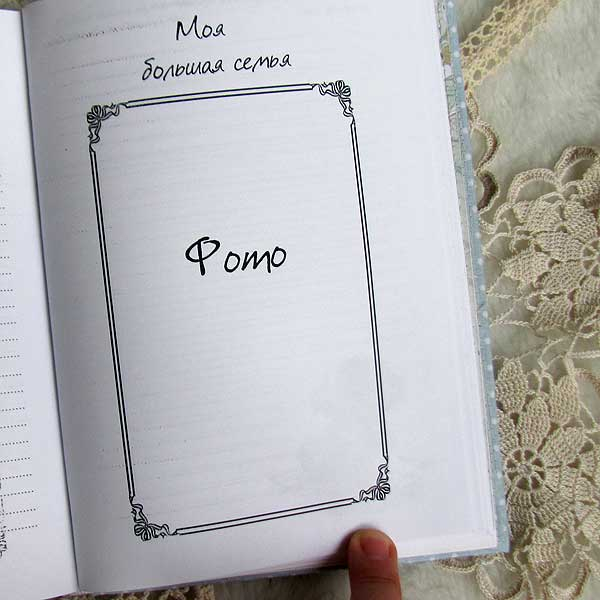 Моя
большая семья
Фото